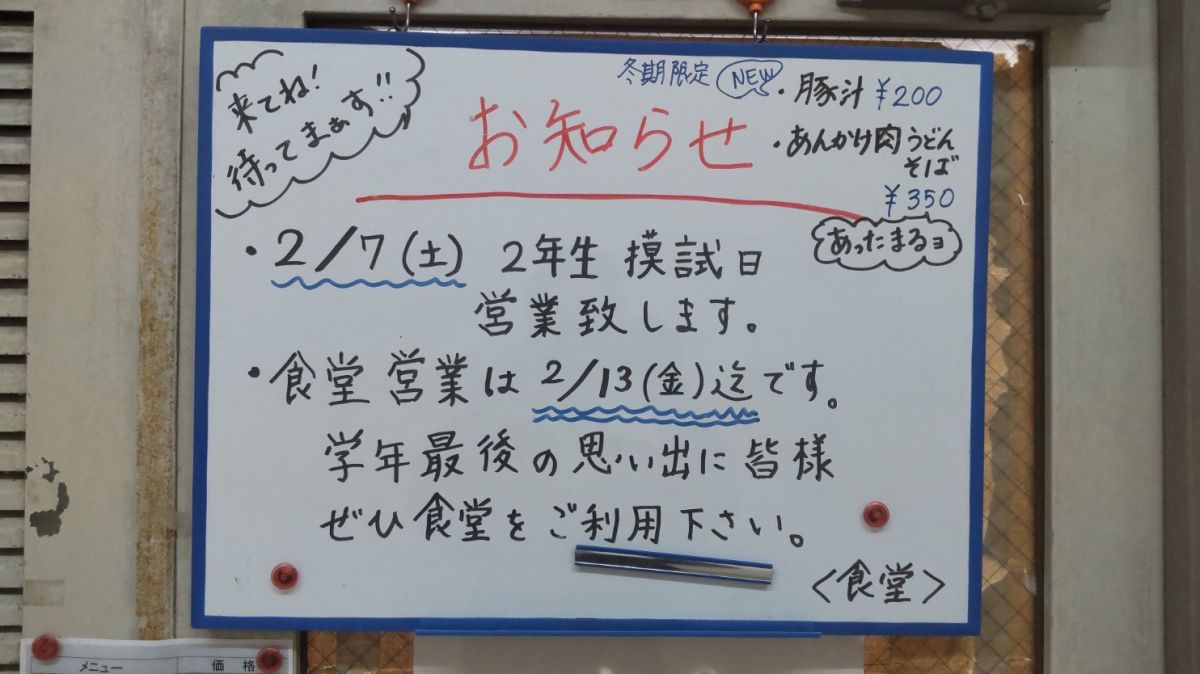 来てね!
待ってまぁす!!
お知らせ
冬期限定 NEW
・豚汁 ¥200
・あんかけ肉うどん
そば
¥350
あったまるョ
・2/7(土) 2年生 摸試日
営業致します。
・食堂営業は 2/13(金)迄です。
学年最後の思い出に皆様
ぜひ食堂をご利用下さい。
<食堂>
メニュー 価格